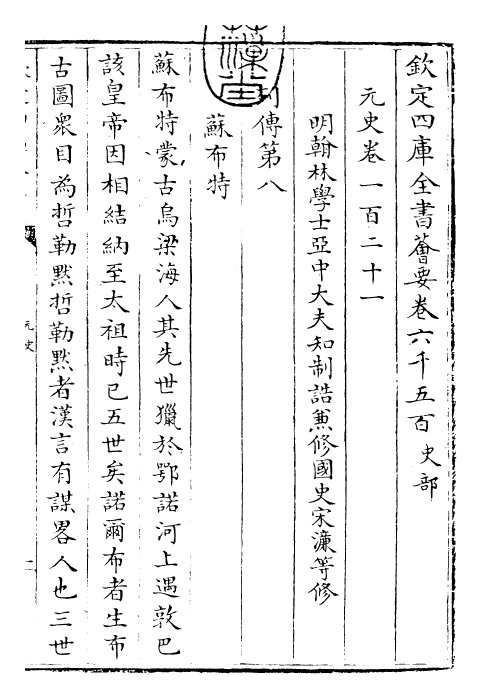 欽定四庫全書薈要卷六千五百 史部
元史卷一百二十一
明翰林學士亞中大夫知制誥兼修國史宋濂等修
列傳第八
蘇布特
蘇布特蒙古烏梁海人其先世獵於鄂諾河上遇敦巴
該皇帝因相結納至太祖時已五世矣諾爾布者生布
古圖衆目為哲勒黙哲勒黙者漢言有謀畧人也三世
元史